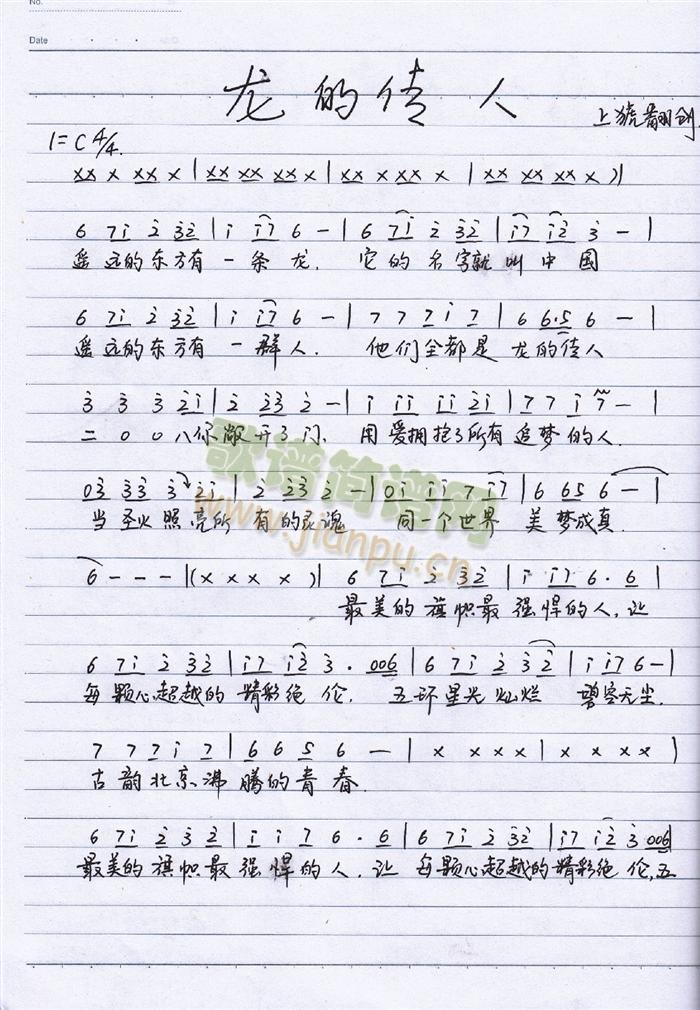 No.
Date
龙的传人
上犹翻创
1=C 4/4
xx x xx x | xx xx xx x | xx x xx x | xx xx xx x )|
6 7i 2 32 | i i7 6 - | 6 7i 2 32 | i7 i2 3 - |
遥远的东方有一条龙. 它的名字就叫中国
6 7i 2 32 | i i7 6 - | 7 7 7 i 7 | 6 6·5 6 - |
遥远的东方有一群人. 他们全都是龙的传人
3 3 3 2i | 2 23 2 - | i ii ii 2i | 7 7 i 7 - |
二00八你敞开了门、用爱拥抱了所有追梦的人.
03 33 3 3 2i | 2 23 2 - | 0i ii 7 i7 | 6 65 6 - |
当圣火照亮所有的灵魂 同一个世界 美梦成真.
6 - - - |(x x x x )| 6 7i 2 32 | i i7 6. 6 |
最美的旗帜最强悍的人,让
6 7i 2 32 | i7 i2 3. 006 | 6 7i 2 32 | i i7 6 - |
每颗心超越的精彩绝伦. 五环星光灿烂 碧空无尘.
7 7 7 i 7 | 6 6 5 6 — | x x x x | x x x x )
古韵北京沸腾的青春.
6 7i 2 3 2 | i i 7 6. 6 | 6 7i 2 32 | i7 i2 3 006 |
最美的旗帜最强悍的人,让每颗心超越的精彩绝伦,五
歌谱简谱网
www.jianpu.cn